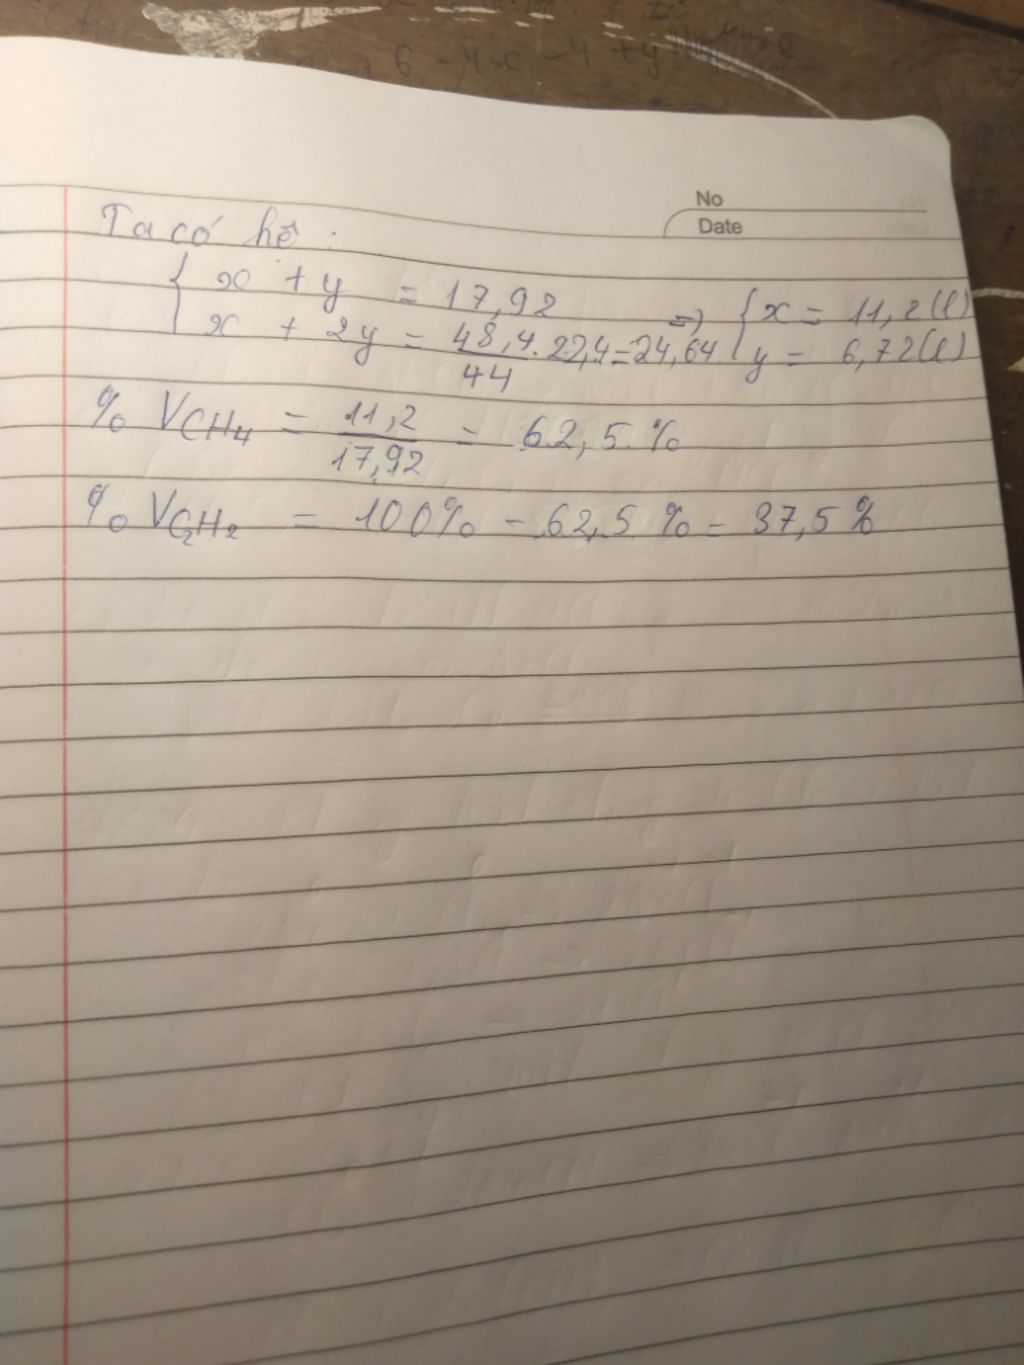 No
Date
Ta có hệ :
{ x + y = 17,92
x + 2y = 48,4/44 . 22,4 = 24,64 => { x = 11,2 (l)
y = 6,72 (l)
% V CH4 = 11,2/17,92 = 62,5 %
% V C2H2 = 100% - 62,5 % = 37,5 %